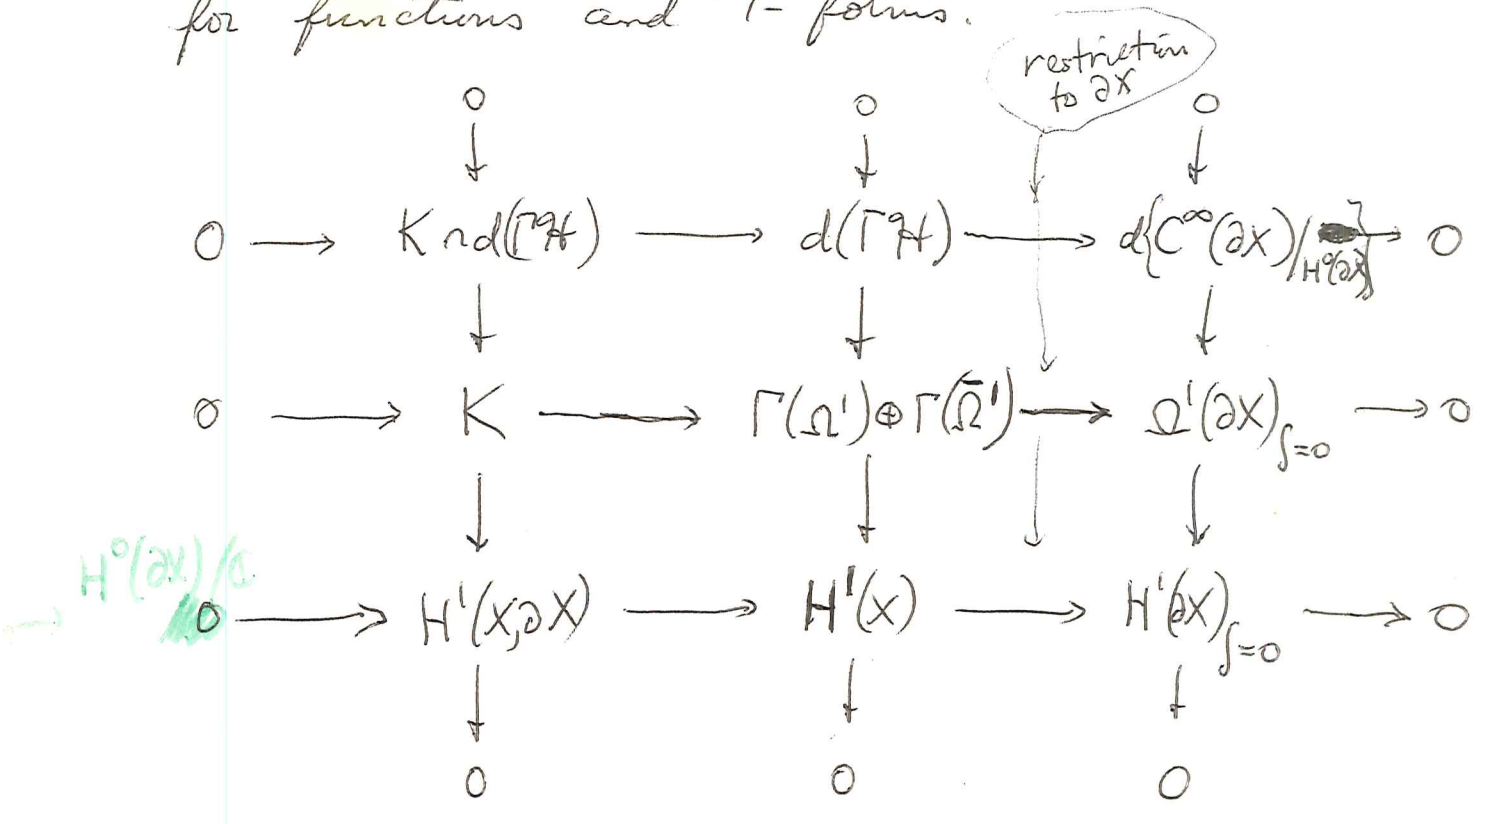 for functions and 1-forms.
restriction
to ∂X
0 0 0
0 → K ∩ d(Γℋ) → d(Γℋ) → d{C^∞(∂X)/H⁰(∂X)} → 0
0 → K → Γ(Ω¹) ⊕ Γ(Ω̄¹) → Ω¹(∂X)_{∫=0} → 0
H⁰(∂X)/ℂ
→ 0 → H¹(X,∂X) → H¹(X) → H¹(∂X)_{∫=0} → 0
0 0 0